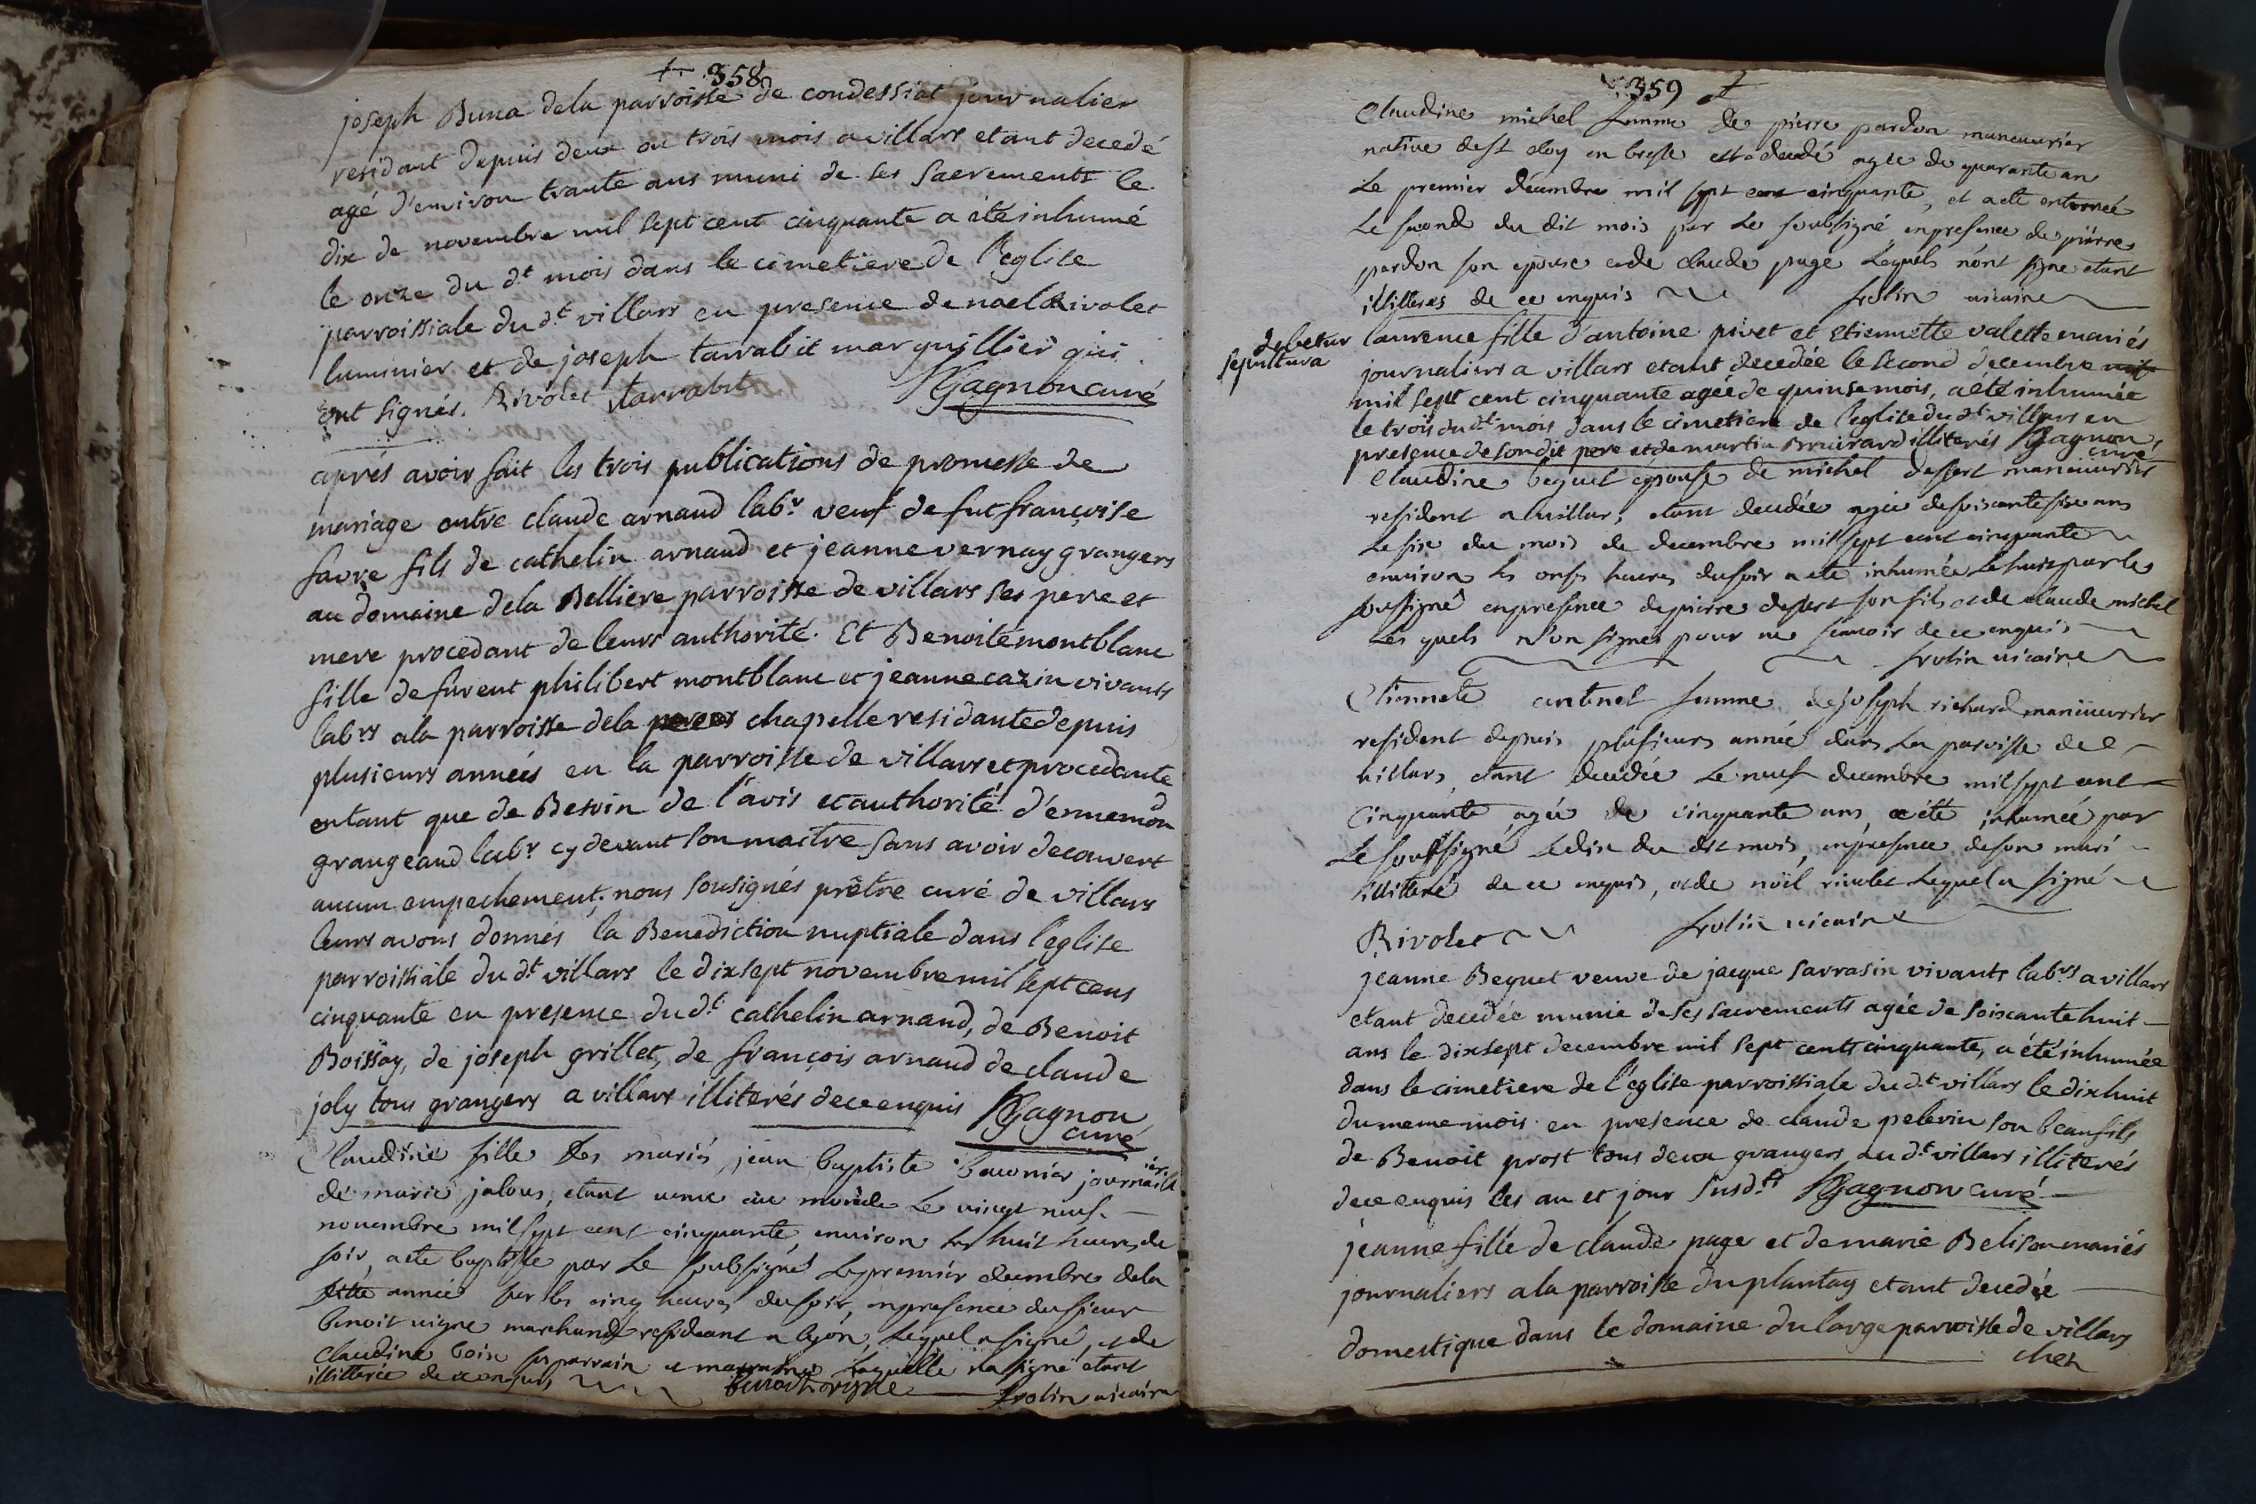 358
joseph Buna dela parroisse de condessiat journalier
residant depuis deux ou trois mois a villars etant decedé
agé d'environ trante ans muni de ses sacrements le
dix de novembre mil sept cent cinquante a été inhumé
le onze du dt mois dans le cimetiere de l'eglise
parroissiale du dt villars en presence de noel Rivolet
luminier et de joseph tarrabit marguillier qui
ont signés. Rivolet tarrabit Gagnon curé
aprés avoir fait les trois publications de promesse de
mariage entre claude arnaud labr veuf de fut françoise
favre fils de cathelin arnaud et jeanne vernay grangers
au domaine dela Belliere parroisse de villars ses pere et
mere procedant de leurs authorité. Et Benoite montblanc
fille de furent philibert montblanc et jeanne cazin vivants
labrs ala parroisse dela chapelle residante depuis
plusieurs années en la parroisse de villars et procedante
entant que de Besoin de l'avis et authorité d'ennemon
grangeand labr cy devant son maitre sans avoir decouvert
aucun empechement; nous sousignés prêtre curé de villars
leurs avons donnés la Benediction nuptiale dans l'eglise
parroissiale du dt villars le dixsept novembre mil sept cens
cinquante en presence du dt cathelin arnaud, de Benoit
Boissoy, de joseph grillet, de françois arnaud de claude
joly tous grangers a villars illiterés de ce enquis Gagnon
curé
Claudine fille des mariés jean baptiste journalier
de marie jalous, etant venue au monde le vingt neuf
novembre mil sept cent cinquante environ les huit heures du
soir, a ete baptisée par le soubsigné le premier decembre dela
ditte année sur les cinq heures du soir, en presence du sieur
benoit vigne marchand resideant a lyon, lequel a signé, et de
claudine boix ses parrain et marraine laquelle na signé etant
illitterée de ce enquis benoit vigne frolin vicaire
359
Claudine michel femme de pierre pardon maneuvrier
native de st eloy en bresse est decedé agée de quarante an
le premier decembre mil sept cent cinquante, et a ete enterrée
le second du dit mois par le soubsigné en presence de pierre
pardon son epoux et de claude page lesquels n'ont signe etant
illitteres de ce enquis frolin vicaire
debetur
sepultura
laurence fille d'antoine pivet et etiennette valette mariés
journaliers a villars etant decedée le second decembre mil
mil sept cent cinquante agée de quinse mois, a été inhumée
le trois du dt mois dans le cimetiere de l'eglise du dt villars en
presence de son dit pere et de martin Brouirard illiterés Gagnon
curé
Claudine beguet épouse de michel dessert maneuvrier
resident a villars, etant decedée agée de soiscante six ans
le six du mois de decembre mil sept cent cinquante
environ les onse heures du soir a ete inhumée le huit par le
soussigné en presence de pierre dessert son fils et de claude michel
les quels n'on signer pour ne scavoir de ce enquis
frolin vicaire
Etiennete femme de joseph richard maneuvrier
resident depuis plusieurs année dans la paroisse de
villars, etant decedée le neuf decembre mil sept cent
cinquante agée de cinquante ans, a été inhumée par
le soussigné le dix du dit mois, en presence de son mari
illitteré de ce enquis, et de noël rivolet lequel a signé
Rivolet frolin vicaire
jeanne Beguet veuve de jacque sarrasin vivants labrs a villars
etant decedée munie de ses sacrements agée de soixante huit
ans le dixsept decembre mil sept cents cinquante, a été inhumée
dans le cimetiere de l'eglise parroissiale du dt villars le dixhuit
du meme mois en presence de claude pelerin son beaufils
de Benoit prost tous deux grangers au dt villars illiterés
de ce enquis les an et jour susdts Gagnon curé
jeanne fille de claude page et de marie Belison mariés
journaliers ala parroisse du plantay etant decedée
domestique dans le domaine du large parroisse de villars
chez